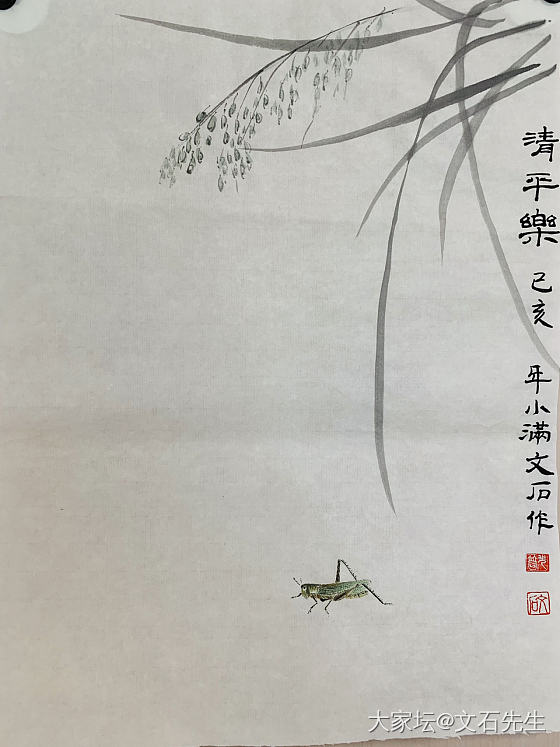 清平樂
己亥年小滿文石作
大家坛@文石先生